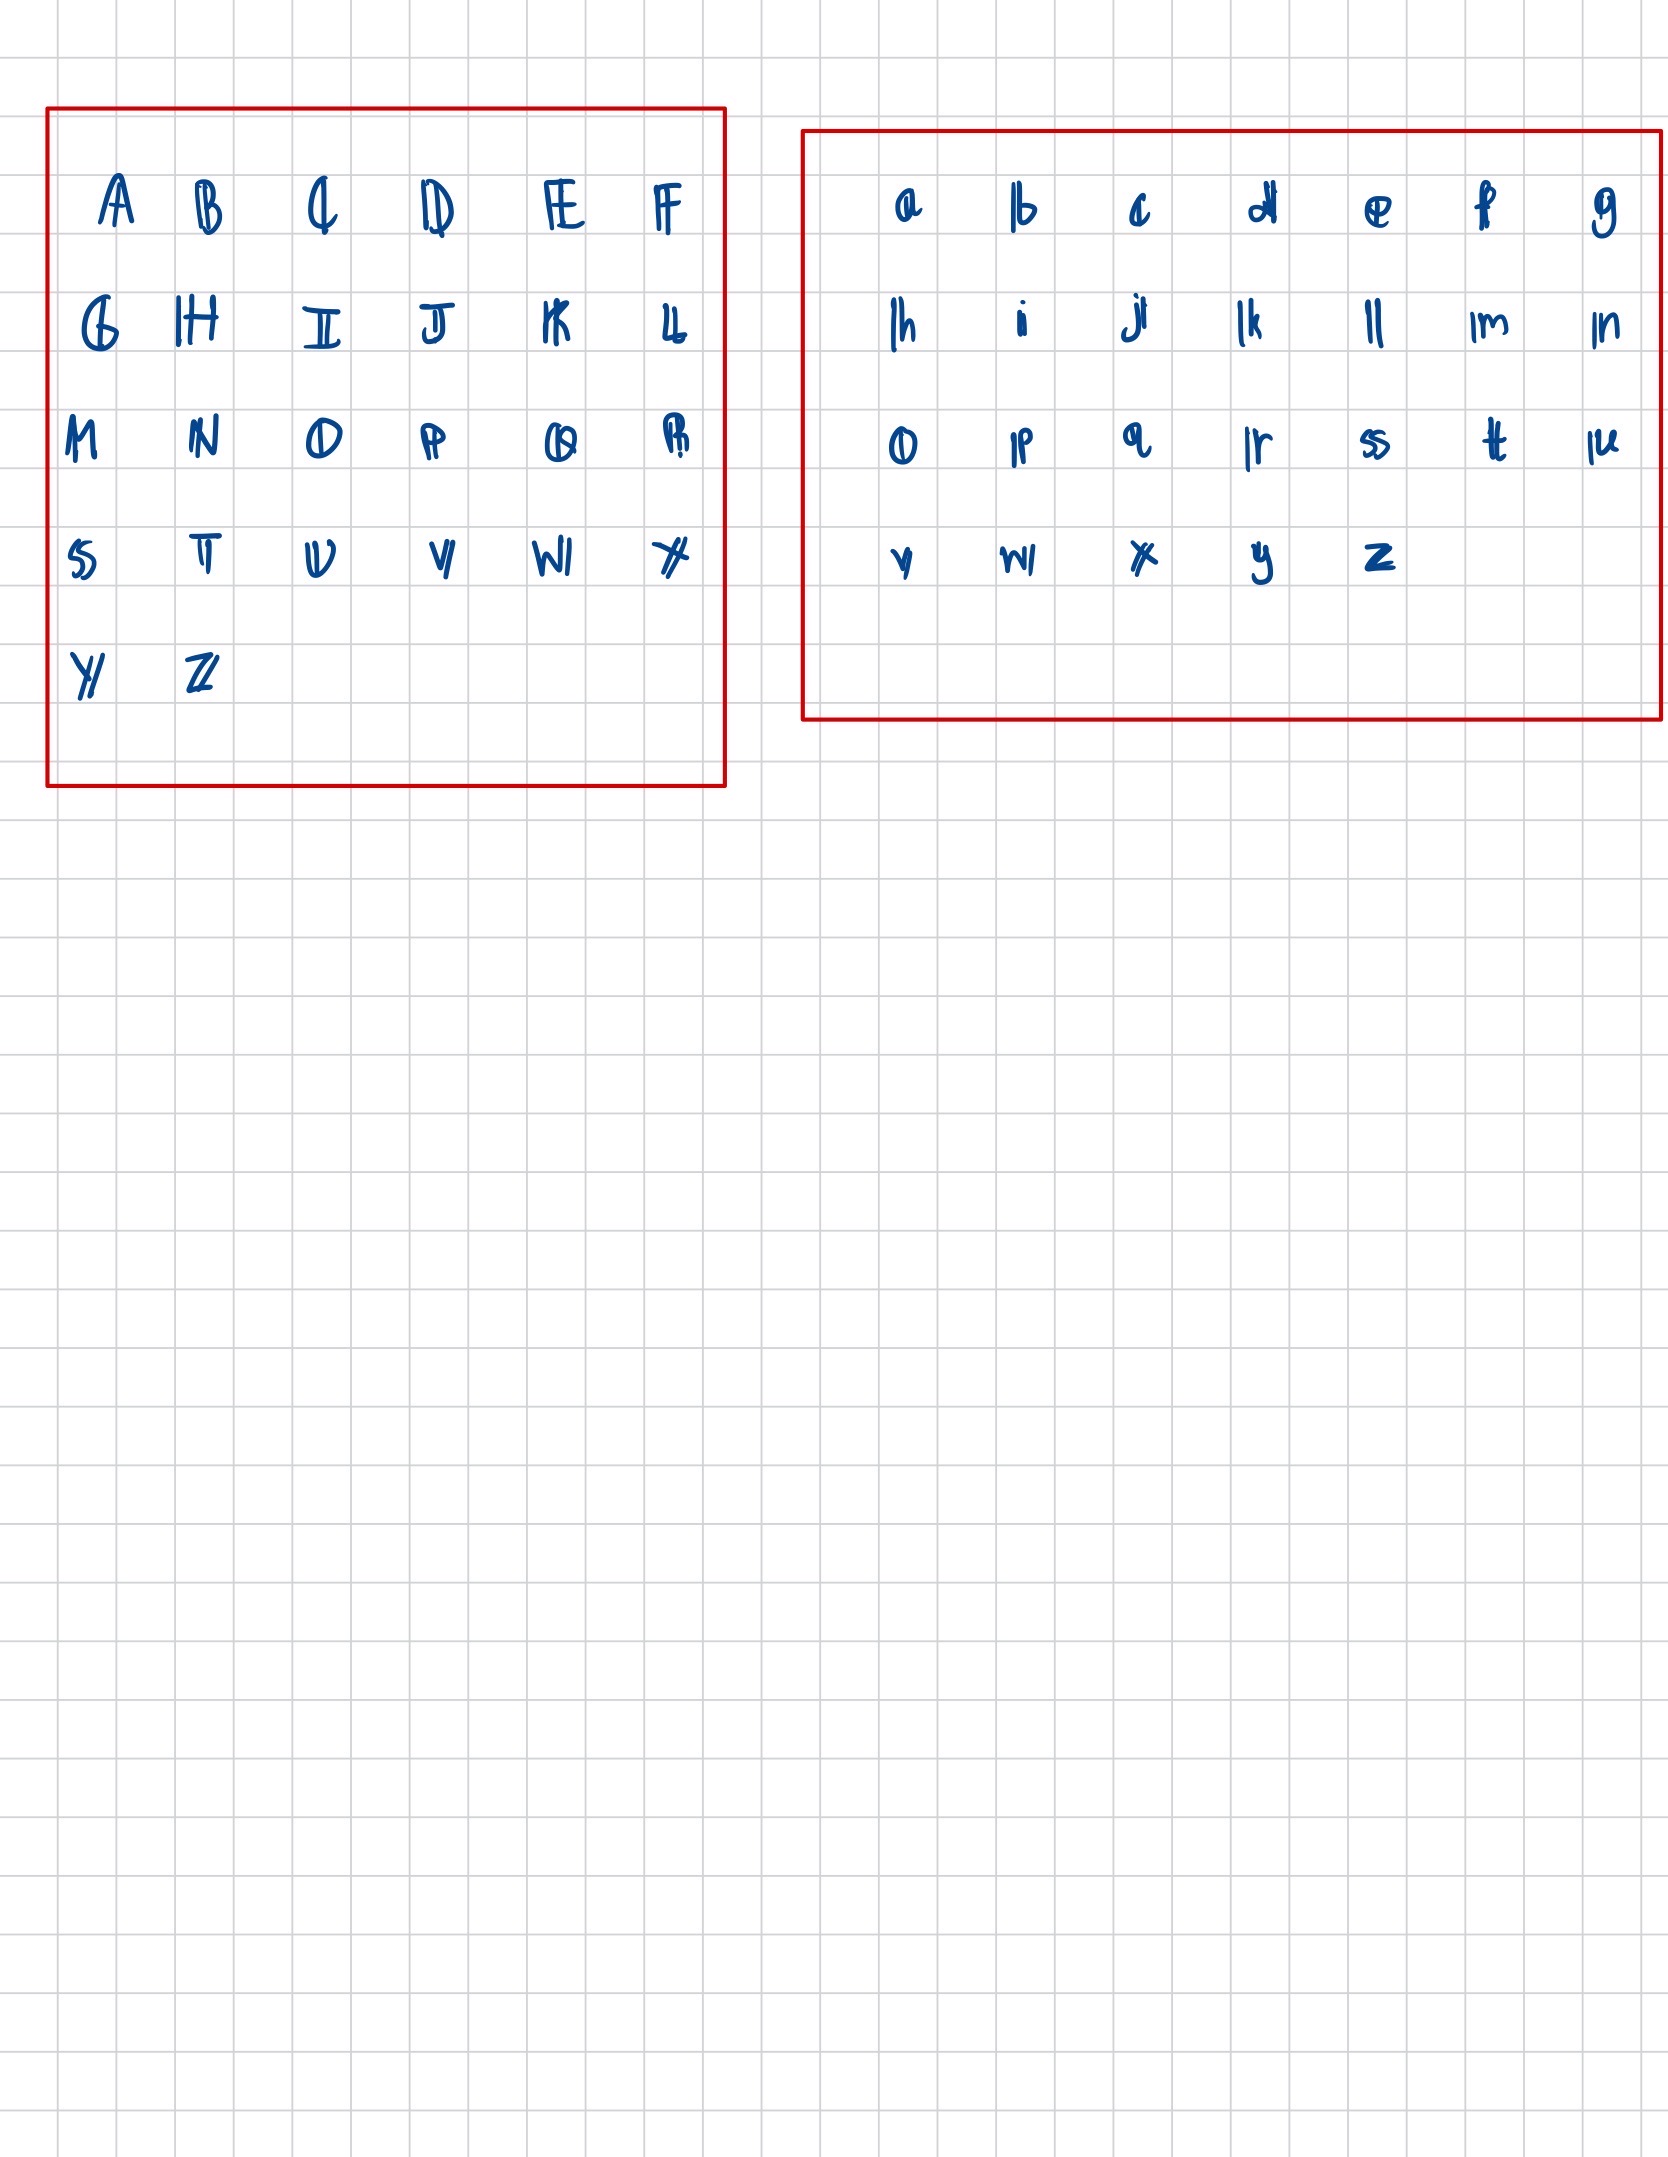 𝔸 𝔹 ℂ 𝔻 𝔼 𝔽
𝔾 ℍ 𝕀 𝕁 𝕂 𝕃
𝕄 ℕ 𝕆 ℙ ℚ ℝ
𝕊 𝕋 𝕌 𝕍 𝕎 𝕏
𝕐 ℤ
𝕒 𝕓 𝕔 𝕕 𝕖 𝕗 𝕘
𝕙 𝕚 𝕛 𝕜 𝕝 𝕞 𝕟
𝕠 𝕡 𝕢 𝕣 𝕤 𝕥 𝕦
𝕧 𝕨 𝕩 𝕪 𝕫